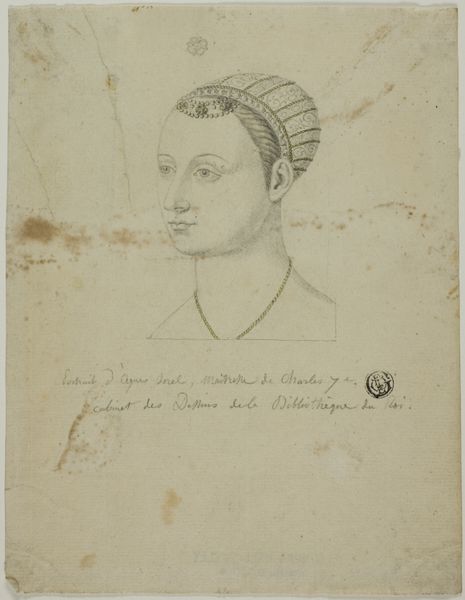 Portrait d'Agnes Sorel, Maitresse de Charles 7e.
Cabinet des Dessins de la Bibliothèque du Roi.